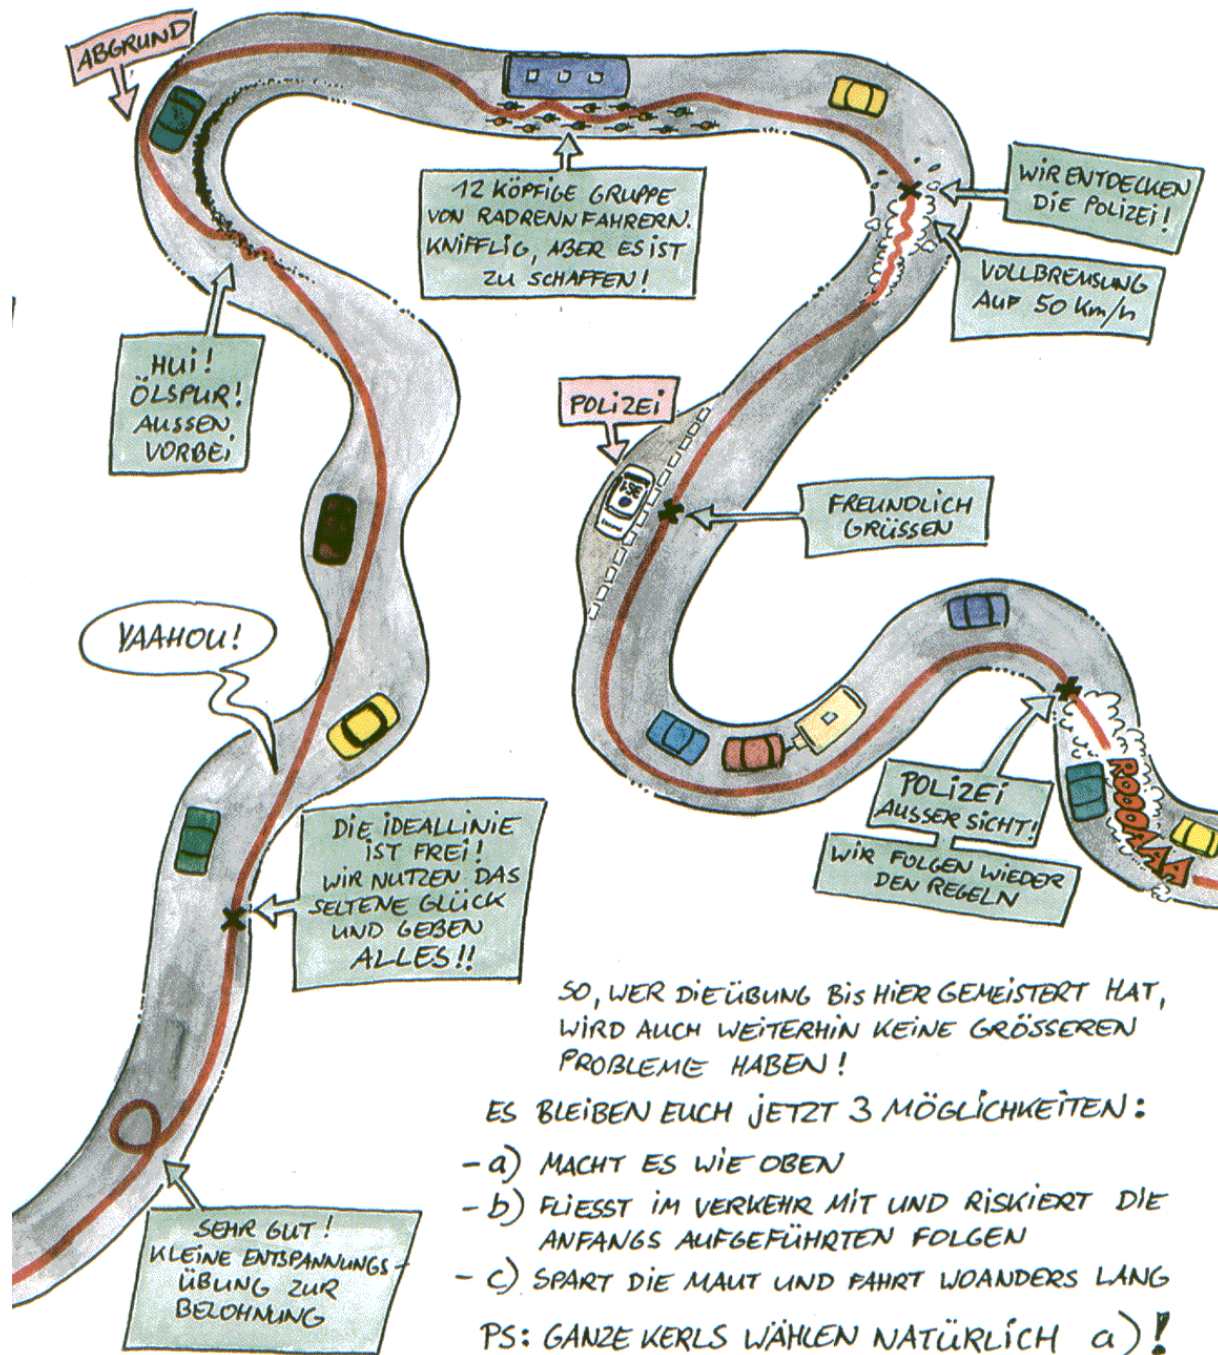 ABGRUND
12 KÖPFIGE GRUPPE
VON RADRENNFAHRERN.
KNIFFLIG, ABER ES IST
ZU SCHAFFEN!
WIR ENTDECKEN
DIE POLIZEI!
VOLLBREMSUNG
AUF 50 Km/h
HUI!
ÖLSPUR!
AUSSEN
VORBEI
POLIZEI
FREUNDLICH
GRÜSSEN
YAAHOU!
DIE IDEALLINIE
IST FREI!
WIR NUTZEN DAS
SELTENE GLÜCK
UND GEBEN
ALLES!!
POLIZEI
AUSSER SICHT!
WIR FOLGEN WIEDER
DEN REGELN
ROOOAAA
SEHR GUT!
KLEINE ENTSPANNUNGS-
ÜBUNG ZUR
BELOHNUNG
SO, WER DIE ÜBUNG BIS HIER GEMEISTERT HAT,
WIRD AUCH WEITERHIN KEINE GRÖSSEREN
PROBLEME HABEN!
ES BLEIBEN EUCH JETZT 3 MÖGLICHKEITEN:
- a) MACHT ES WIE OBEN
- b) FLIESST IM VERKEHR MIT UND RISKIERT DIE
ANFANGS AUFGEFÜHRTEN FOLGEN
- c) SPART DIE MAUT UND FAHRT WOANDERS LANG
PS: GANZE KERLS WÄHLEN NATÜRLICH a)!